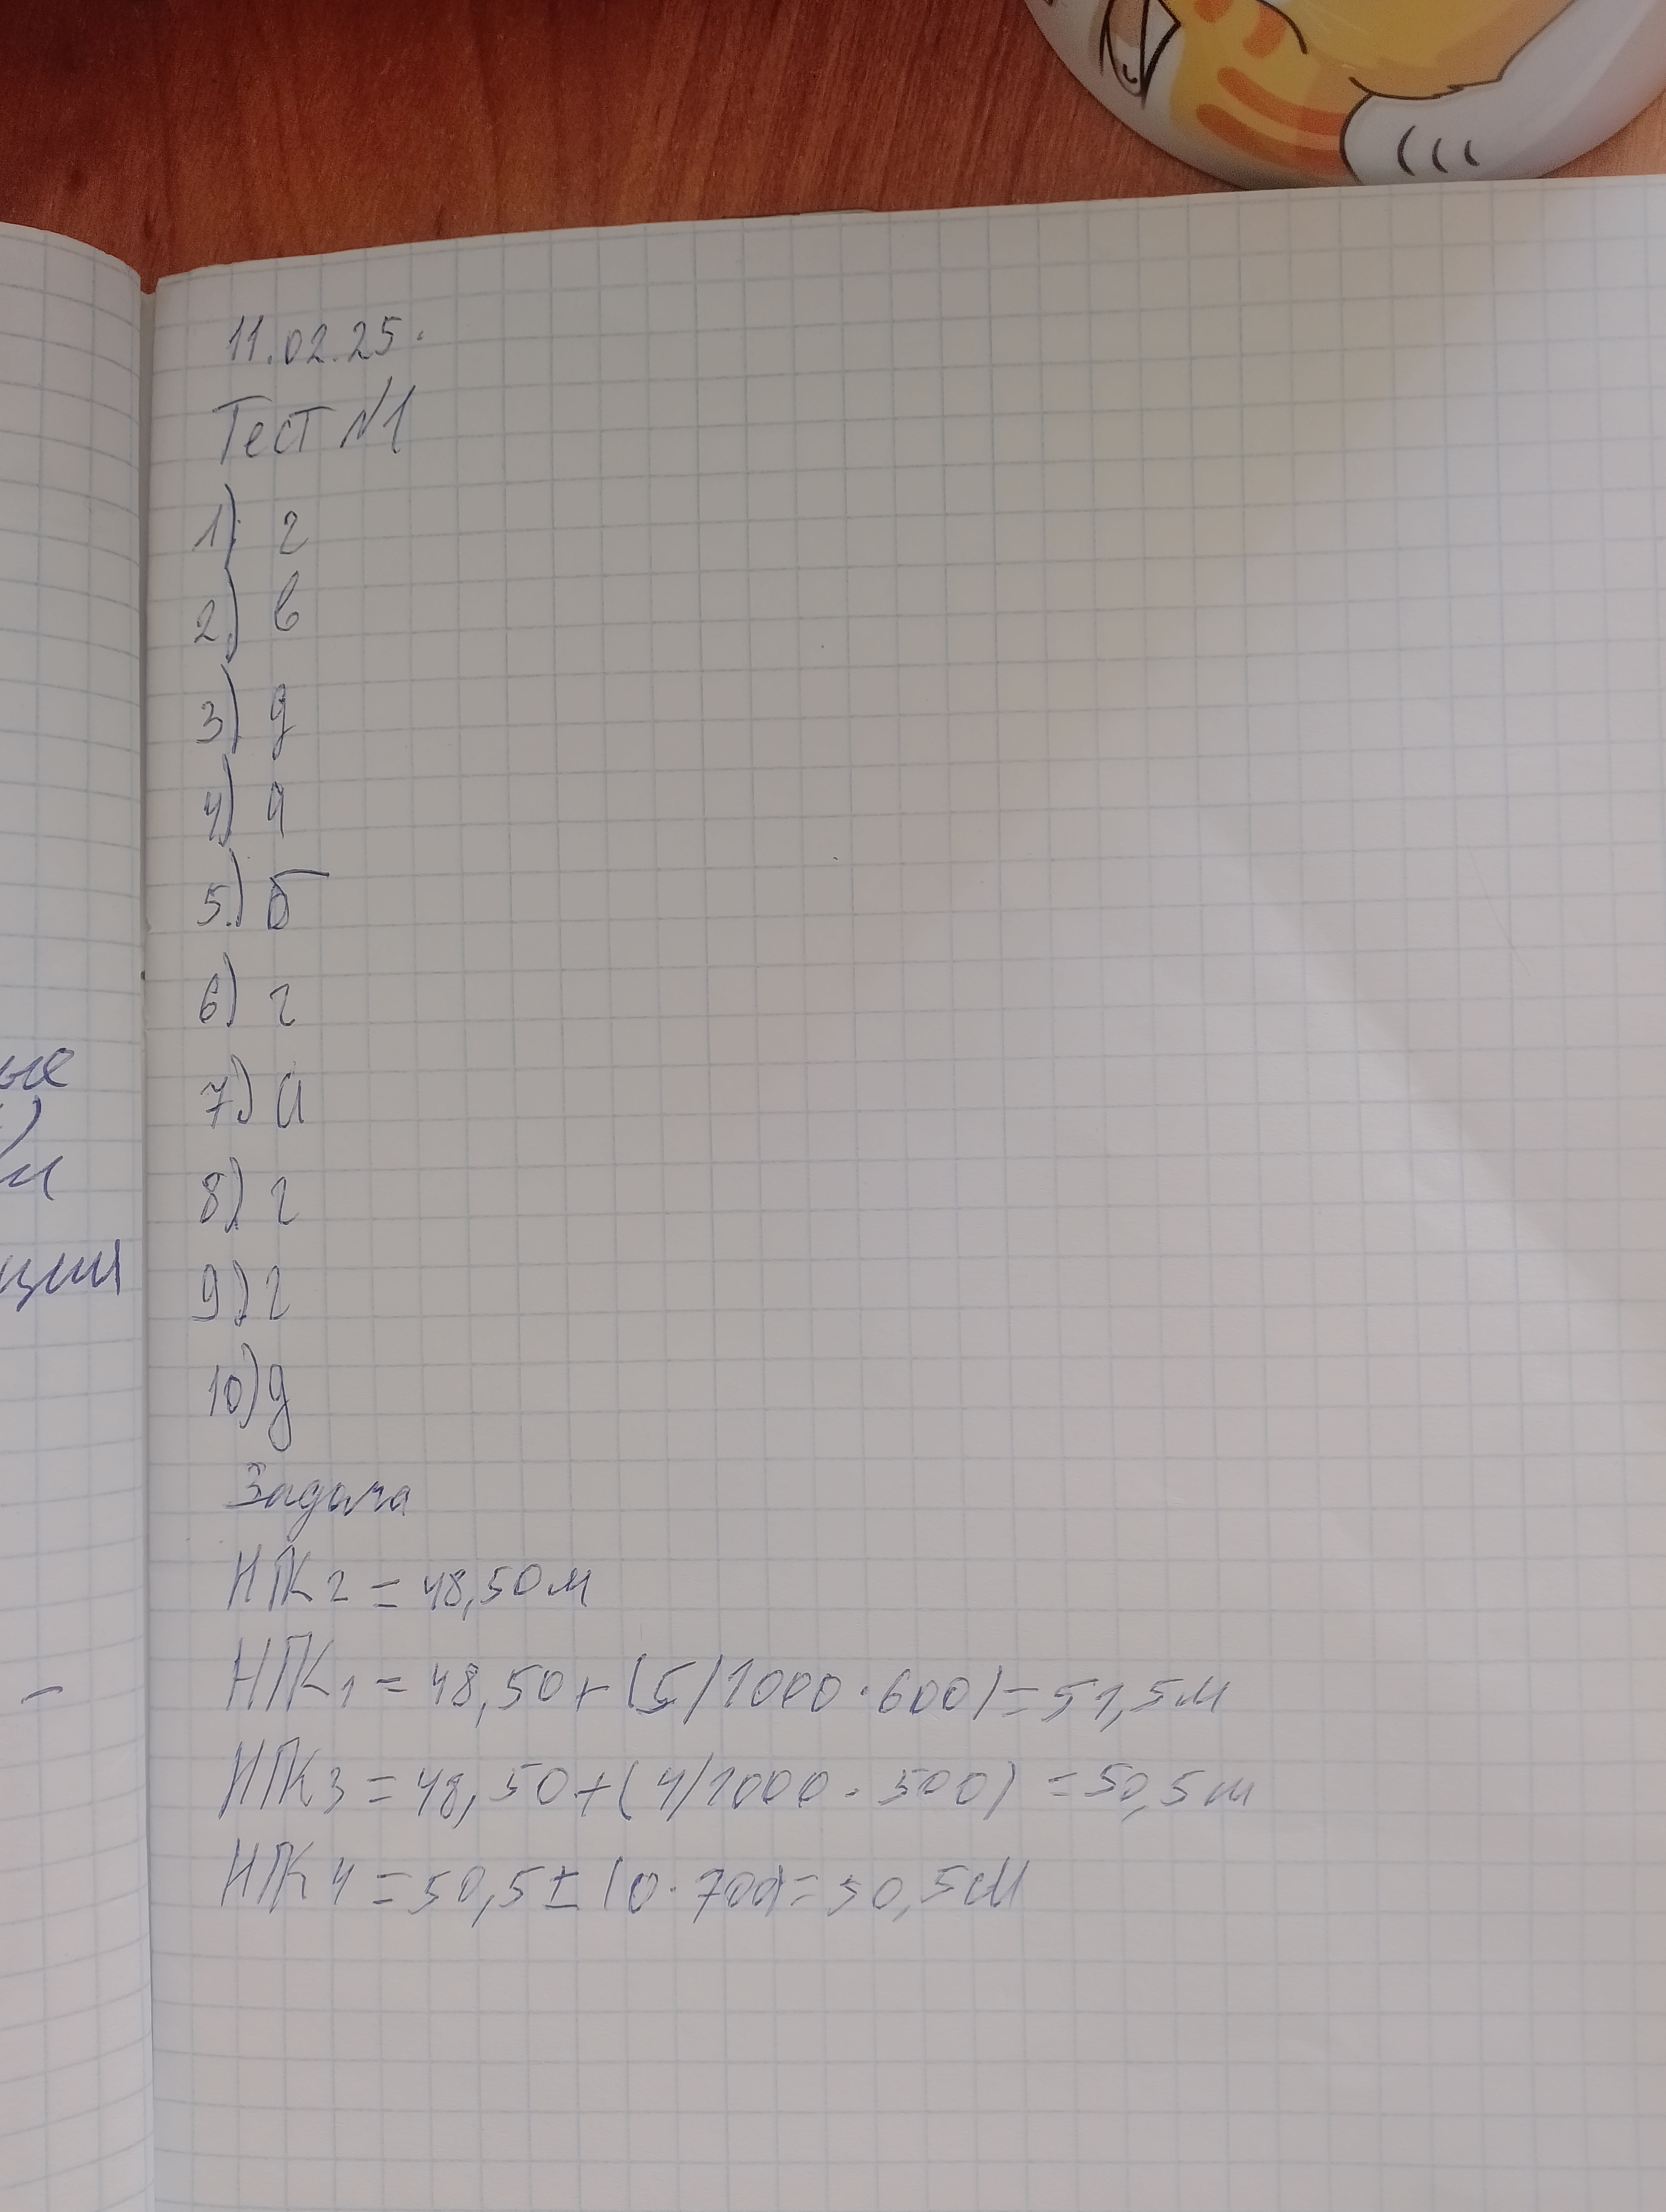 11.02.25.
Тест №1
1) г
2) в
3) д
4) а
5) б
6) г
7) а
8) г
9) г
10) д
Задача
НПК2 = 48,50м
НПК1 = 48,50+(5/1000·600)=51,5м
НПК3 = 48,50+(4/1000·500)=50,5м
НПК4 = 50,5±(0·700)=50,5м
ые
ции